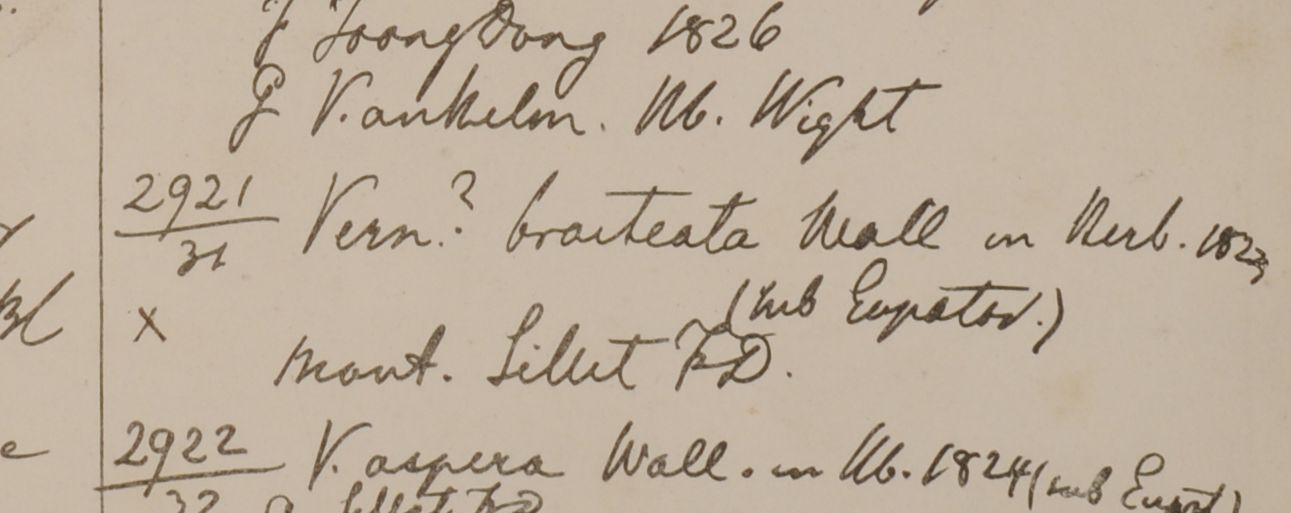 F Toong Dong 1826
G V. anthelm. Hb. Wight
2921 Vern.? bracteata Wall in Herb. 1823
31
(sub Eupator.)
X
Mont. Sillet FD.
2922 V. aspera Wall. in Hb. 1824 (sub Eupat)
32 a Sillet FD